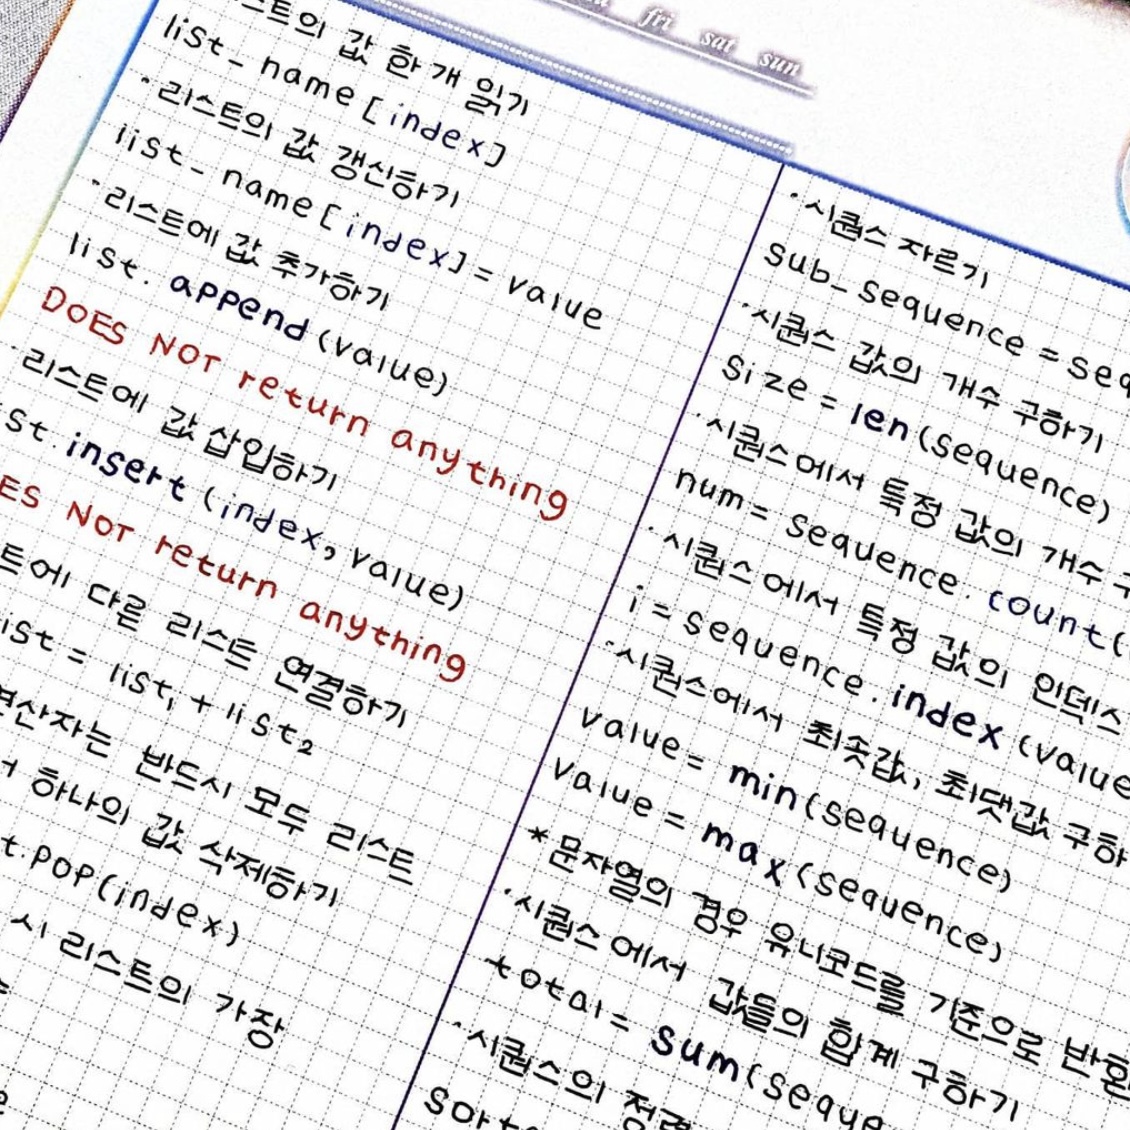 fri sat sun
스트의 값 한 개 읽기
list_name[index]
· 리스트의 값 갱신하기
list_name[index] = value
· 리스트에 값 추가하기
list.append(value)
DOES NOT return anything
· 리스트에 값 삽입하기
st.insert(index, value)
ES NOT return anything
트에 다른 리스트 연결하기
ist = list1 + list2
연산자는 반드시 모두 리스트
하나의 값 삭제하기
t.pop(index)
시 리스트의 가장
· 시퀀스 자르기
sub_sequence = seq
· 시퀀스 값의 개수 구하기
size = len(sequence)
· 시퀀스에서 특정 값의 개수 구
num = sequence.count(
· 시퀀스에서 특정 값의 인덱스
i = sequence.index(value
· 시퀀스에서 최솟값, 최댓값 구하
value = min(sequence)
value = max(sequence)
* 문자열의 경우 유니코드를 기준으로 반환
· 시퀀스에서 값들의 합계 구하기
total = sum(seque
· 시퀀스의 정렬
sort